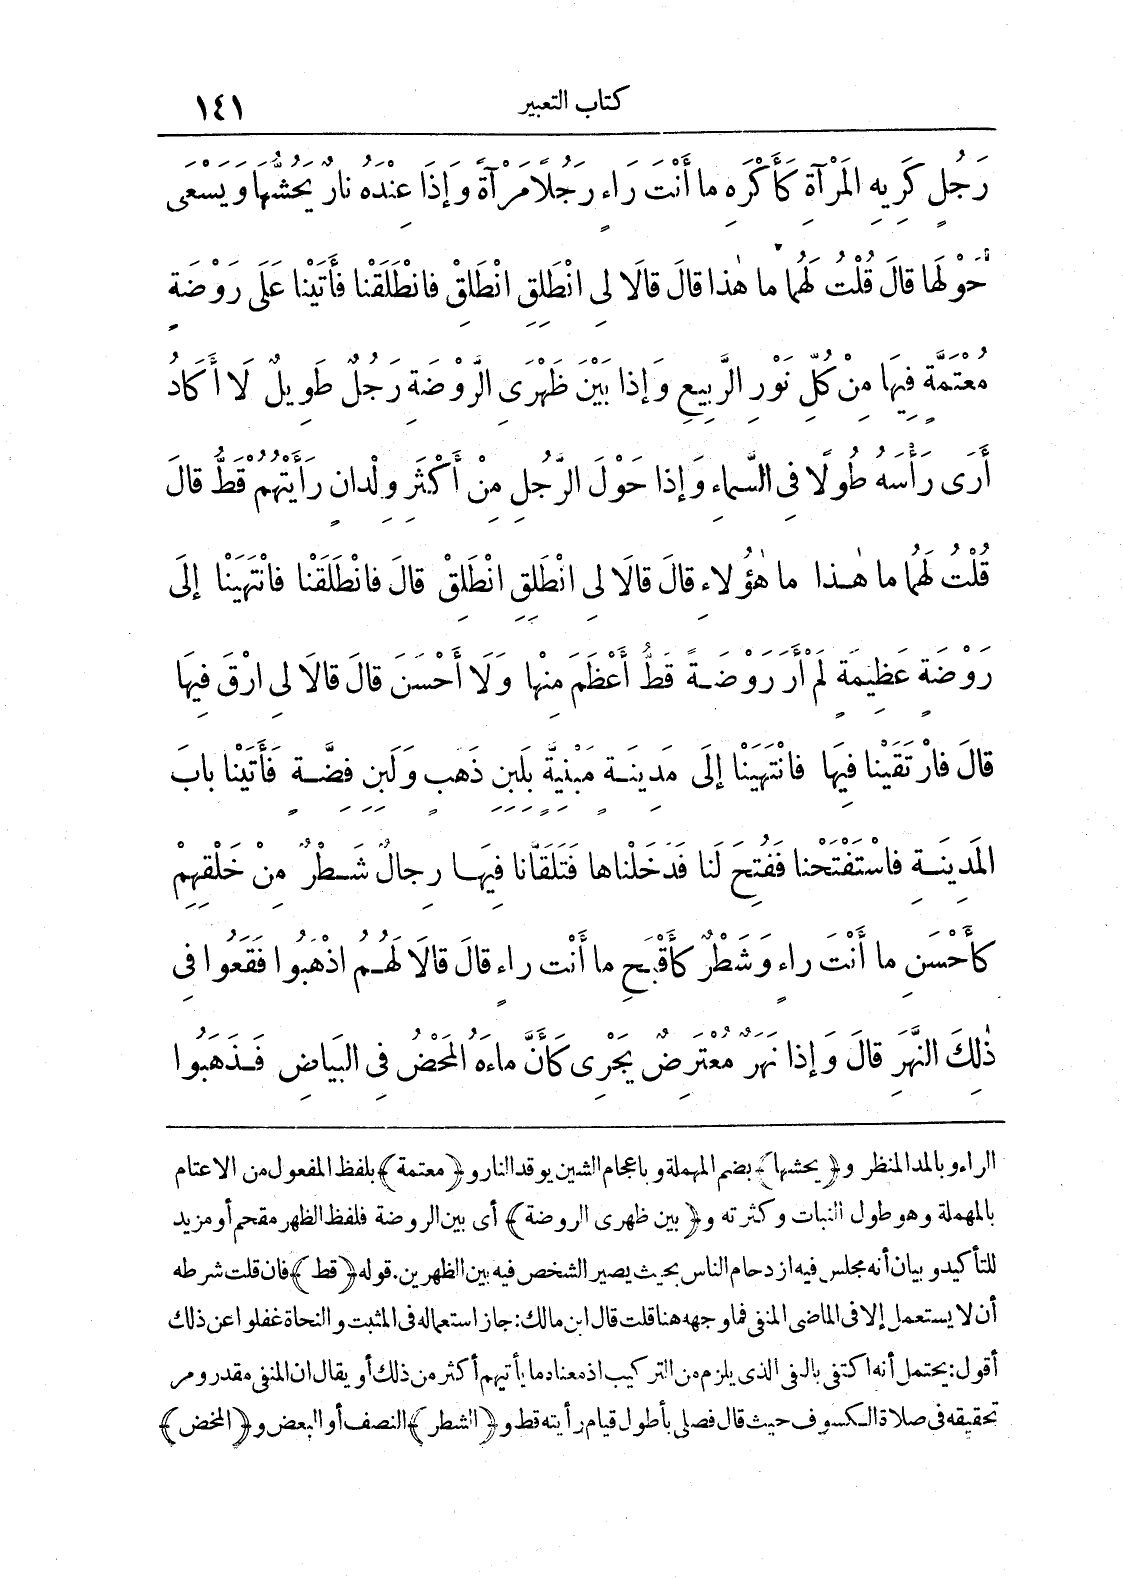 كتاب التعبير ١٤١
رَجُلٍ كَرِيهِ المَرْآةِ كَأَكْرَهِ ما أَنْتَ رَاءٍ رَجُلًا مَرْآةً وَإِذَا عِنْدَهُ نارٌ يَحُشُّها وَيَسْعَى
حَوْلَها قالَ قُلْتُ لَهُما ما هٰذا قالَ قالَا لِى انْطَلِقِ انْطَلِقْ فانْطَلَقْنا فأَتَيْنا عَلَى رَوْضَةٍ
مُعْتَمَّةٍ فِيهَا مِنْ كُلِّ نَوْرِ الرَّبِيعِ وَإِذا بَيْنَ ظَهْرَىِ الرَّوْضَةِ رَجُلٌ طَوِيلٌ لَا أَكَادُ
أَرَى رَأْسَهُ طُولًا فِى السَّماءِ وَإِذا حَوْلَ الرَّجُلِ مِنْ أَكْثَرِ وِلْدانٍ رَأَيْتُهُمْ قَطُّ قالَ
قُلْتُ لَهُما ما هٰذا ما هٰؤُلاءِ قالَ قالَا لِى انْطَلِقِ انْطَلِقْ قالَ فانْطَلَقْنا فانْتَهَيْنا إلَى
رَوْضَةٍ عَظِيمَةٍ لَمْ أَرَ رَوْضَةً قَطُّ أَعْظَمَ مِنْها وَلَا أَحْسَنَ قالَ قالَا لِى ارْقَ فِيهَا
قالَ فارْتَقَيْنا فِيهَا فانْتَهَيْنا إلَى مَدِينَةٍ مَبْنِيَّةٍ بِلَبِنِ ذَهَبٍ وَلَبِنِ فِضَّةٍ فَأَتَيْنا بابَ
المَدِينَةِ فاسْتَفْتَحْنا فَفُتِحَ لَنا فَدَخَلْناها فَتَلَقَّانا فِيهَا رِجالٌ شَطْرٌ مِنْ خَلْقِهِمْ
كأَحْسَنِ ما أَنْتَ راءٍ وَشَطْرٌ كأَقْبَحِ ما أَنْتَ راءٍ قالَ قالَا لَهُمُ اذْهَبُوا فَقَعُوا فِى
ذٰلِكَ النَّهَرِ قالَ وَإِذا نَهَرٌ مُعْتَرِضٌ يَجْرِى كَأَنَّ ماءَهُ المَحْضُ فِى البَيَاضِ فَذَهَبُوا
الراء وبالمد المنظر و﴿يحشها﴾ بضم المهملة وباعجام الشين يوقد النار و﴿معتمة﴾ بلفظ المفعول من الاعتام
بالمهملة وهو طول النبات وكثرته و﴿بين ظهرى الروضة﴾ أى بين الروضة فلفظ الظهر مقحم أو مزيد
للتأكيد وبيان أنه مجلس فيه ازدحام الناس بحيث يصير الشخص فيه بين الظهرين. قوله ﴿قط﴾ فان قلت شرطه
أن لا يستعمل إلا فى الماضى المنفى فما وجهه هنا قلت قال ابن مالك: جاز استعماله فى المثبت والنحاة غفلوا عن ذلك
أقول: يحتمل أنه اكتفى بالنفى الذى يلزم من التركيب اذ معناه ما يأتيهم أكثر من ذلك أو يقال ان المنفى مقدر ومر
تحقيقه فى صلاة الكسوف حيث قال فصلى بأطول قيام رأيته قط و﴿الشطر﴾ النصف أو البعض و﴿المخض﴾